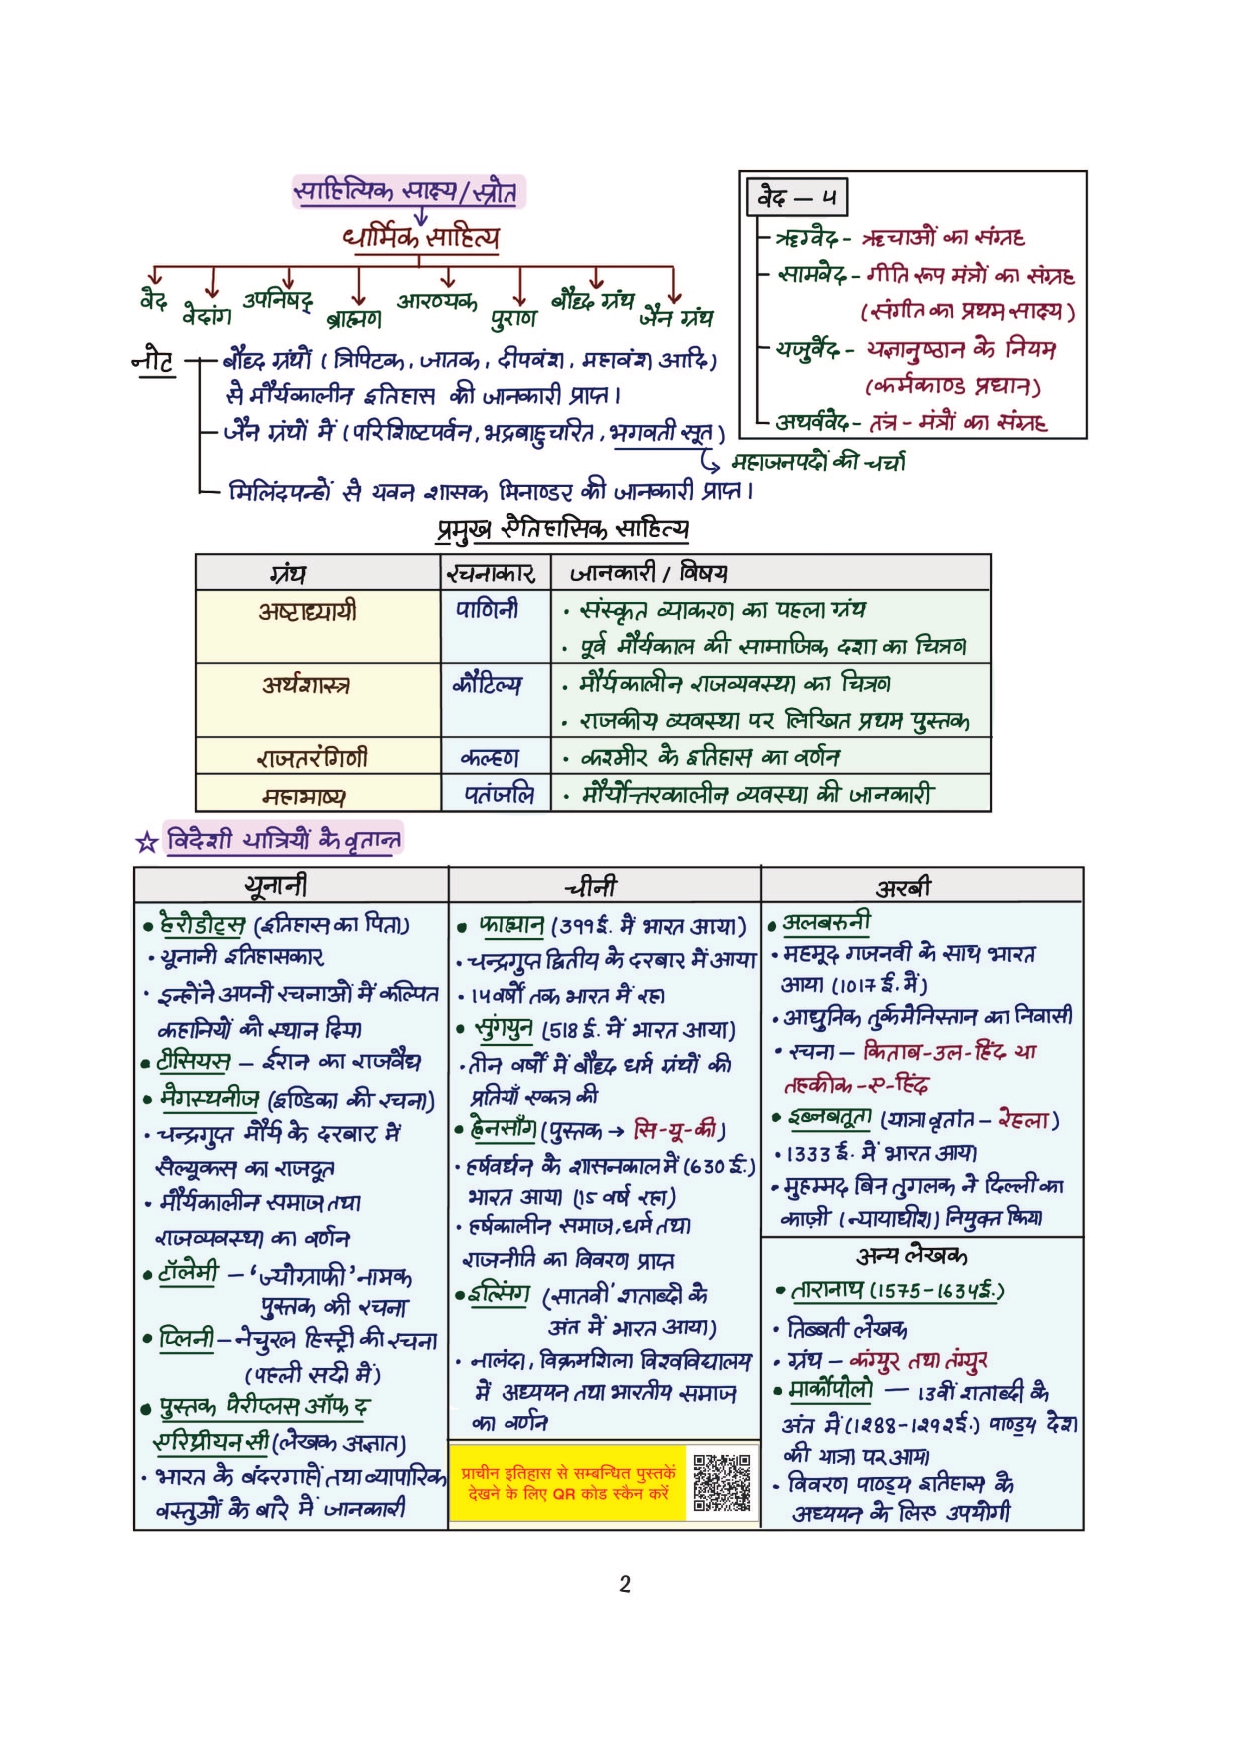 साहित्यिक साक्ष्य/स्रोत
धार्मिक साहित्य
वेद
वेदांग
उपनिषद्
ब्राह्मण
आरण्यक
पुराण
बौद्ध ग्रंथ
जैन ग्रंथ
वेद — 4
ऋग्वेद - ऋचाओं का संग्रह
सामवेद - गीति रूप मंत्रों का संग्रह
(संगीत का प्रथम साक्ष्य)
यजुर्वेद - यज्ञानुष्ठान के नियम
(कर्मकाण्ड प्रधान)
अथर्ववेद - तंत्र - मंत्रों का संग्रह
नोट
बौद्ध ग्रंथों (त्रिपिटक, जातक, दीपवंश, महावंश आदि)
से मौर्यकालीन इतिहास की जानकारी प्राप्त।
जैन ग्रंथों में (परिशिष्टपर्वन, भद्रबाहुचरित, भगवती सूत)
महाजनपदों की चर्चा
मिलिंदपन्हों से यवन शासक मिनाण्डर की जानकारी प्राप्त।
प्रमुख ऐतिहासिक साहित्य
ग्रंथ रचनाकार जानकारी / विषय
अष्टाध्यायी पाणिनी • संस्कृत व्याकरण का पहला ग्रंथ
• पूर्व मौर्यकाल की सामाजिक दशा का चित्रण
अर्थशास्त्र कौटिल्य • मौर्यकालीन राजव्यवस्था का चित्रण
• राजकीय व्यवस्था पर लिखित प्रथम पुस्तक
राजतरंगिणी कल्हण • कश्मीर के इतिहास का वर्णन
महाभाष्य पतंजलि • मौर्योत्तरकालीन व्यवस्था की जानकारी
☆ विदेशी यात्रियों के वृतान्त
यूनानी
• हेरोडोट्स (इतिहास का पिता)
• यूनानी इतिहासकार
• इन्होंने अपनी रचनाओं में कल्पित
कहानियों को स्थान दिया
• टीसियस – ईरान का राजवैद्य
• मेगस्थनीज (इण्डिका की रचना)
• चन्द्रगुप्त मौर्य के दरबार में
सेल्यूकस का राजदूत
• मौर्यकालीन समाज तथा
राजव्यवस्था का वर्णन
• टॉलेमी – 'ज्योग्राफी' नामक
पुस्तक की रचना
• प्लिनी – नेचुरल हिस्ट्री की रचना
(पहली सदी में)
• पुस्तक पेरीप्लस ऑफ द
एरिथ्रीयन सी (लेखक अज्ञात)
• भारत के बंदरगाहों तथा व्यापारिक
वस्तुओं के बारे में जानकारी
चीनी
• फाह्यान (399 ई. में भारत आया)
• चन्द्रगुप्त द्वितीय के दरबार में आया
• 14 वर्षों तक भारत में रहा
• सुंगयुन (518 ई. में भारत आया)
• तीन वर्षों में बौद्ध धर्म ग्रंथों की
प्रतियाँ एकत्र की
• ह्वेनसाँग (पुस्तक → सि-यू-की)
• हर्षवर्धन के शासनकाल में (630 ई.)
भारत आया (15 वर्ष रहा)
• हर्षकालीन समाज, धर्म तथा
राजनीति का विवरण प्राप्त
• इत्सिंग (सातवीं शताब्दी के
अंत में भारत आया)
• नालंदा, विक्रमशिला विश्वविद्यालय
में अध्ययन तथा भारतीय समाज
का वर्णन
प्राचीन इतिहास से सम्बन्धित पुस्तकें
देखने के लिए QR कोड स्कैन करें
अरबी
• अलबरूनी
• महमूद गजनवी के साथ भारत
आया (1017 ई. में)
• आधुनिक तुर्कमेनिस्तान का निवासी
• रचना – किताब-उल-हिंद या
तहकीक-ए-हिंद
• इब्नबतूता (यात्रा वृतांत – रेहला)
• 1333 ई. में भारत आया
• मुहम्मद बिन तुगलक ने दिल्ली का
काज़ी (न्यायाधीश) नियुक्त किया
अन्य लेखक
• तारानाथ (1575-1634ई.)
• तिब्बती लेखक
• ग्रंथ – कंग्युर तथा तंग्युर
• मार्कोपोलो — 13वीं शताब्दी के
अंत में (1288-1292ई.) पाण्ड्य देश
की यात्रा पर आया
• विवरण पाण्ड्य इतिहास के
अध्ययन के लिए उपयोगी
2